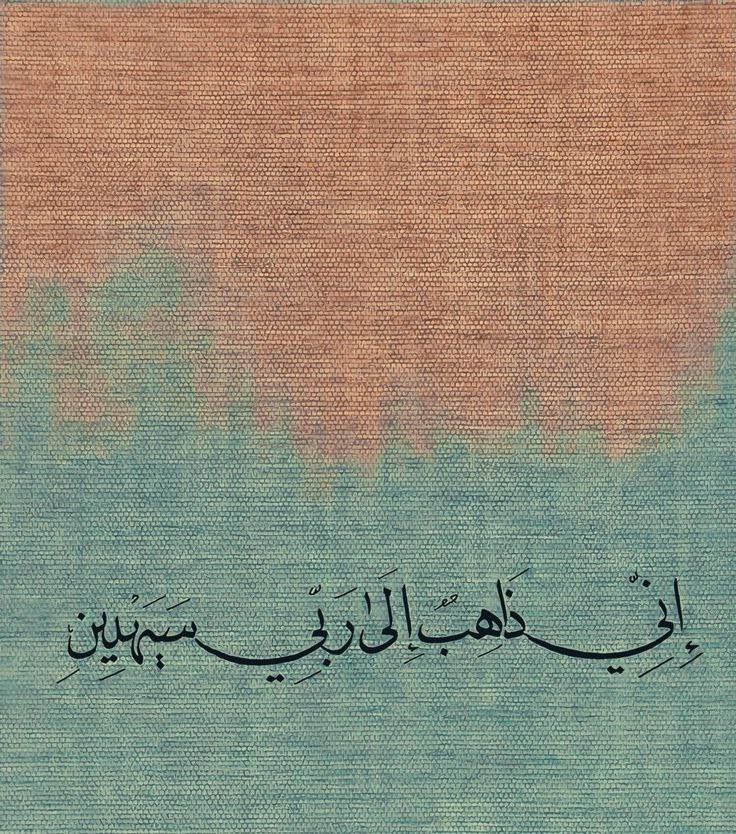 إِنِّي ذَاهِبٌ إِلَىٰ رَبِّي سَيَهْدِينِ